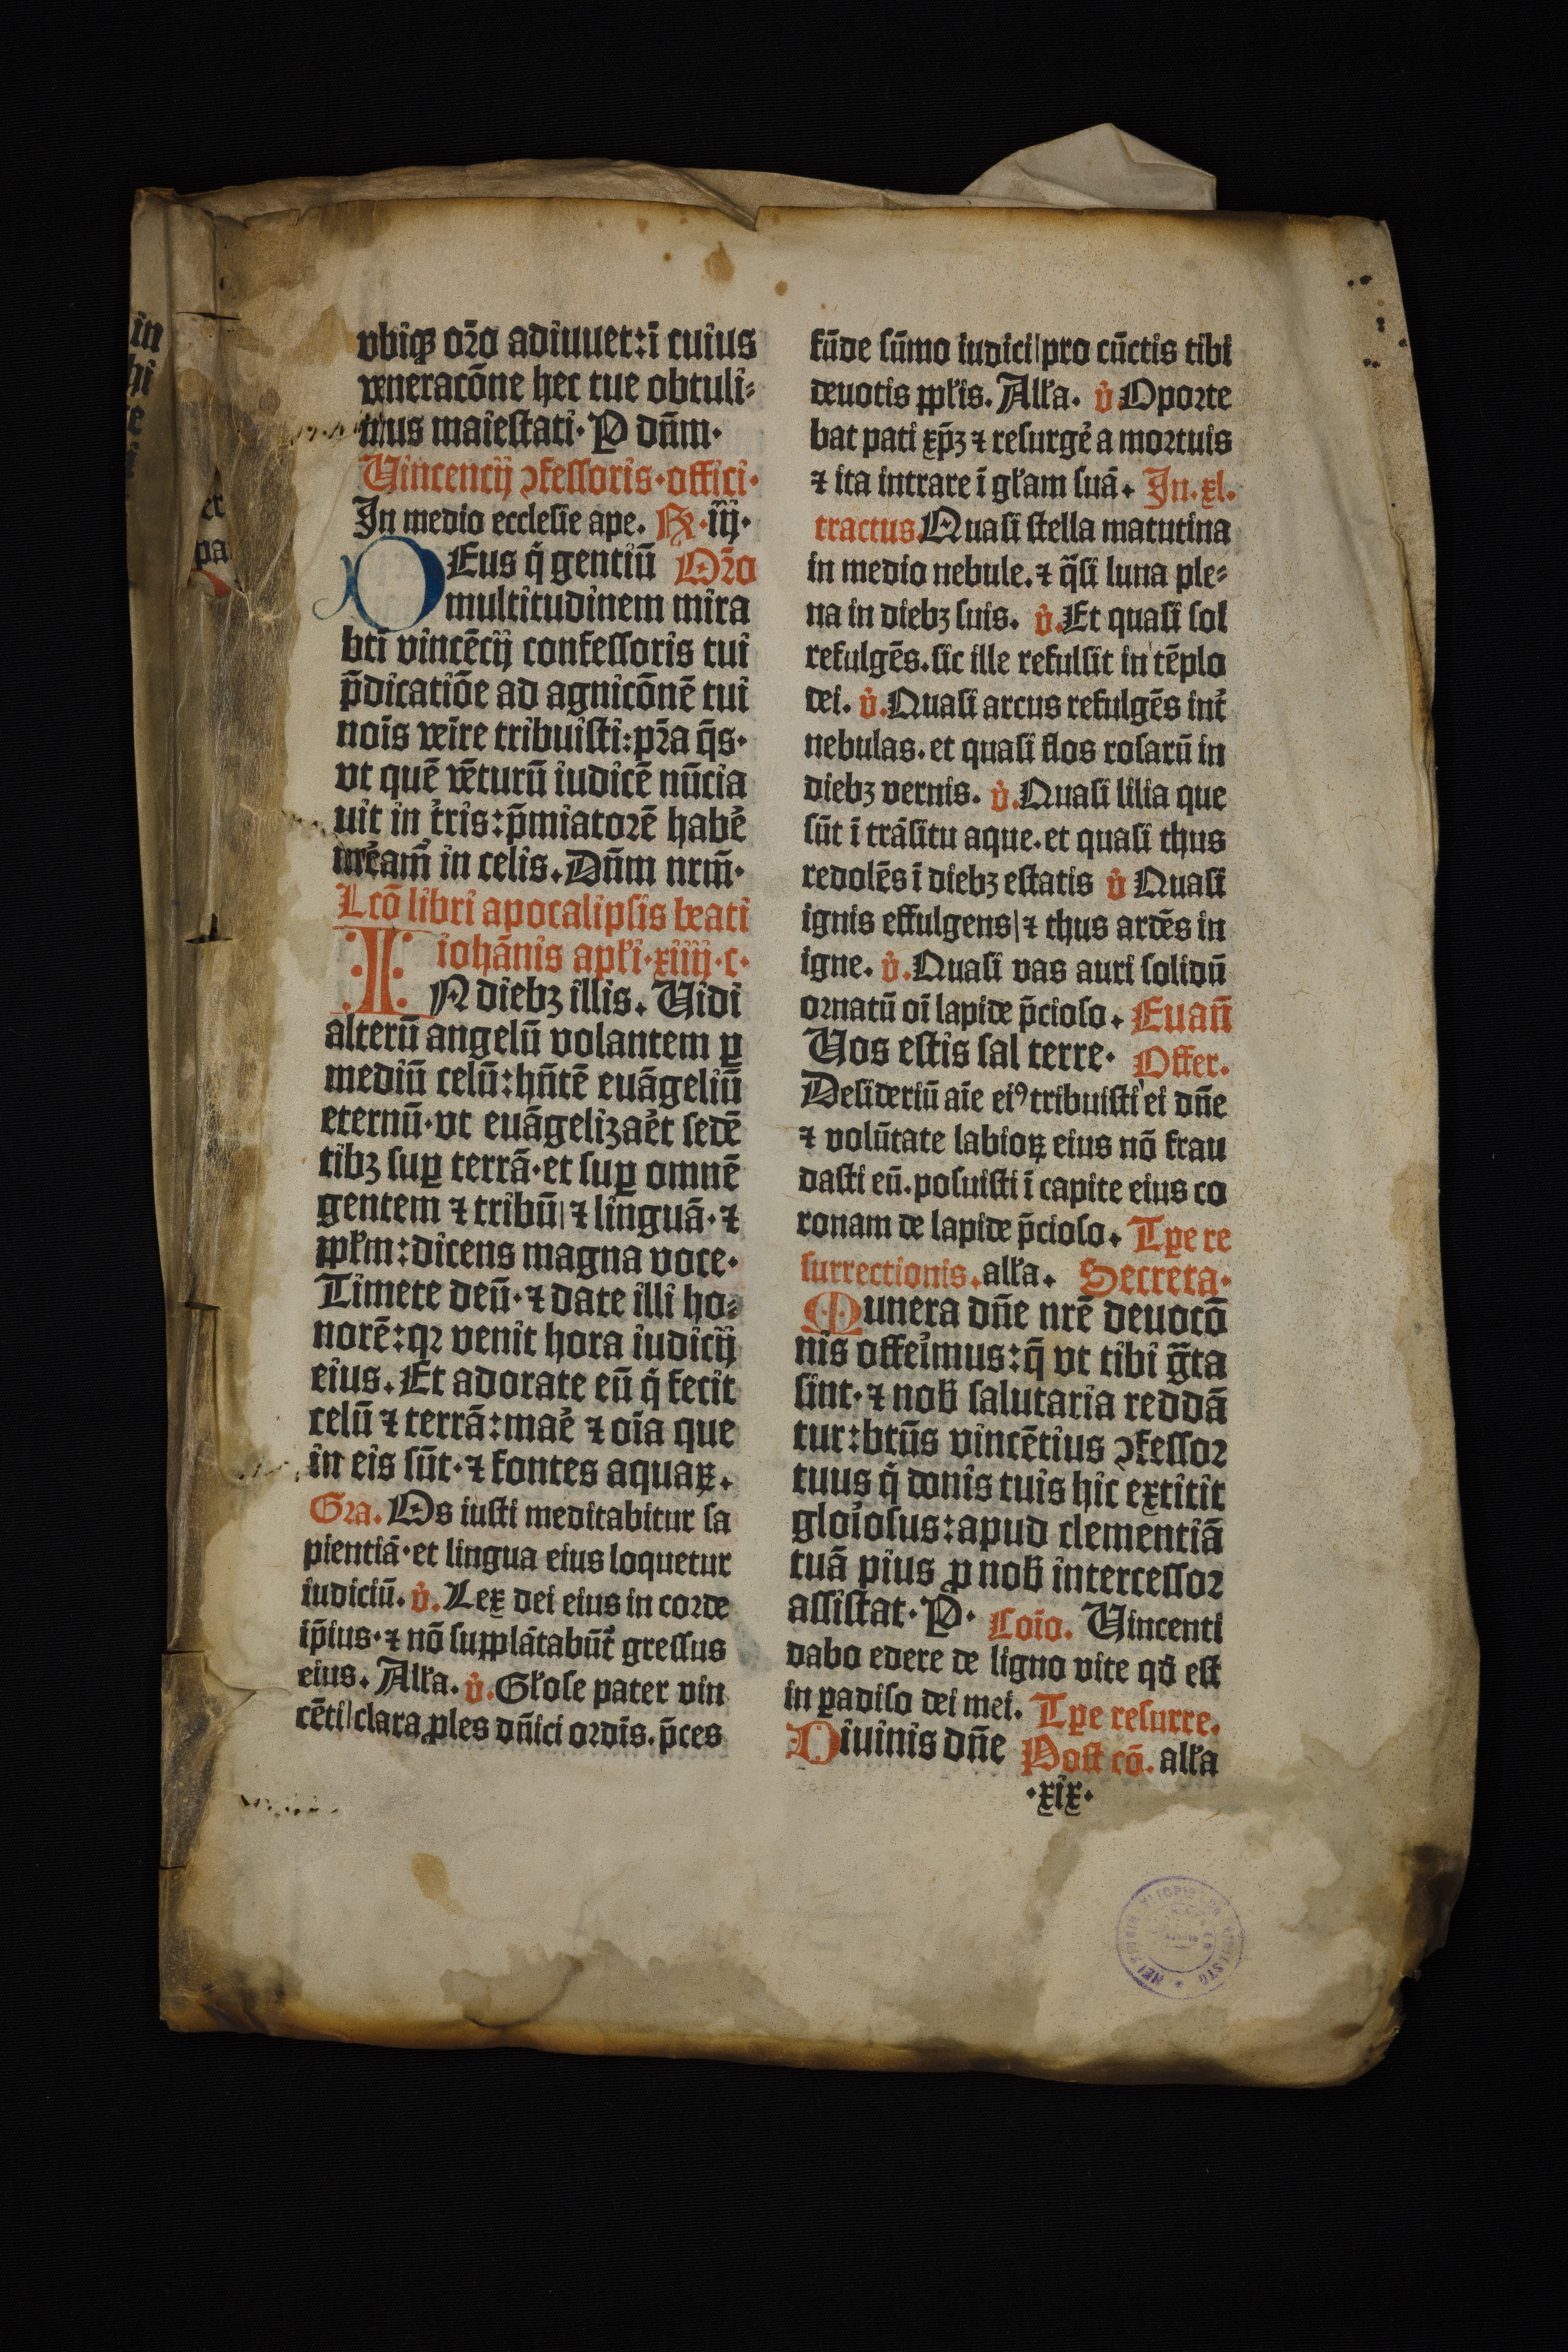 vbiqꝫ or̄o adiuuet: ī cuius
veneracōne hec tue obtuli⸗
mus maiestati· P dn̄m·
Vincencij ↄfessoris·offici·
In medio ecclesie ape. R̷·iij·
DEus q̇ gentiū Or̄o
multitudinem mira
bti̅ vincēcij confessoris tui
p̄dicatiōe ad agnicōnē tui
nois̄ veīre tribuisti: pr̄a q̄s·
vt quē vēturū iudicē nūcia
uit in tr̄is: p̄miatorē habe᷑
mre᷑am̄ in celis. Dn̄m nrm̄·
Lcō libri apocalipsis beati
iohānis apl̄i·xiiij·c·
IN diebꝫ illis. Vidi
alterū angelū volantem ꝑ
mediū celū: hn̄tē euāgeliū
eternū· vt euāgelizae᷑t sedē
tibꝫ suꝑ terrā· et suꝑ omnē
gentem ⁊ tribū| ⁊ linguā· ⁊
ppl̄m: dicens magna voce·
Timete deū· ⁊ date illi ho⸗
norē: qꝛ venit hora iudicij
eius. Et adorate eū q̇ fecit
celū ⁊ terrā: mae᷑ ⁊ oīa que
in eis sūt· ⁊ fontes aquaꝝ.
Gra. Os iusti meditabitur sa
pientiā· et lingua eius loquetur
iudiciū. v̇. Lex dei eius in corde
ip̄ius· ⁊ nō supplātabūt᷑ gressus
eius. All̄a. v̇. Gl̄ose pater vin
cēti| clara ꝓles dn̄ici ordīs. p̄ces
fūde sūmo iudici| pro cūctis tibi
deuotis ppl̄is. All̄a. v̇. Oporte
bat pati xp̄ꝫ ⁊ resurge᷑ a mortuis
⁊ ita intrare ī gl̄am suā. In. xl.
tractus. Quasi stella matutina
in medio nebule. ⁊ q̄si luna ple⸗
na in diebꝫ suis. v̇. Et quasi sol
refulgēs. sic ille refulsit in tēplo
dei. v̇. Quasi arcus refulgēs int᷑
nebulas. et quasi flos rosarū in
diebꝫ vernis. v̇. Quasi lilia que
sūt ī trāsitu aque. et quasi thus
redolēs ī diebꝫ estatis v̇ Quasi
ignis effulgens| ⁊ thus ardēs in
igne. v̇. Quasi vas auri solidū
ornatū oī lapide p̄cioso. Euan̄
Vos estis sal terre. Offer.
Desideriū aīe eiꝰ tribuisti ei dn̄e
⁊ volūtate labioꝝ eius nō frau
dasti eū. posuisti ī capite eius co
ronam de lapide p̄cioso. Tꝑe re
surrectionis. all̄a. Secreta.
Munera dn̄e nrē deuocō
nis offei᷑mus: q̄ vt tibi g̃ta
sint· ⁊ nob̄ salutaria reddā
tur: btūs vincētius ↄfessor
tuus q̇ donis tuis hic extitit
gloi᷑osus: apud clementiā
tuā pius ꝓ nob̄ intercessor
assistat· P· Coīo. Vincenti
dabo edere de ligno vite qđ est
in ꝑadiso dei mei. Tꝑe resurre.
Diuinis dn̄e Post cō. all̄a
·xix·
in
hi
te
i
et
pa